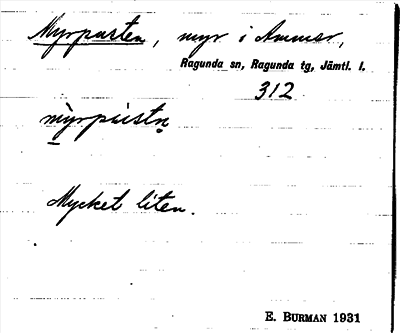 Myrpusten, myr i Ammer,
Ragunda sn, Ragunda tg, Jämtl. l.
312
Mycket liten.
E. BURMAN 1931